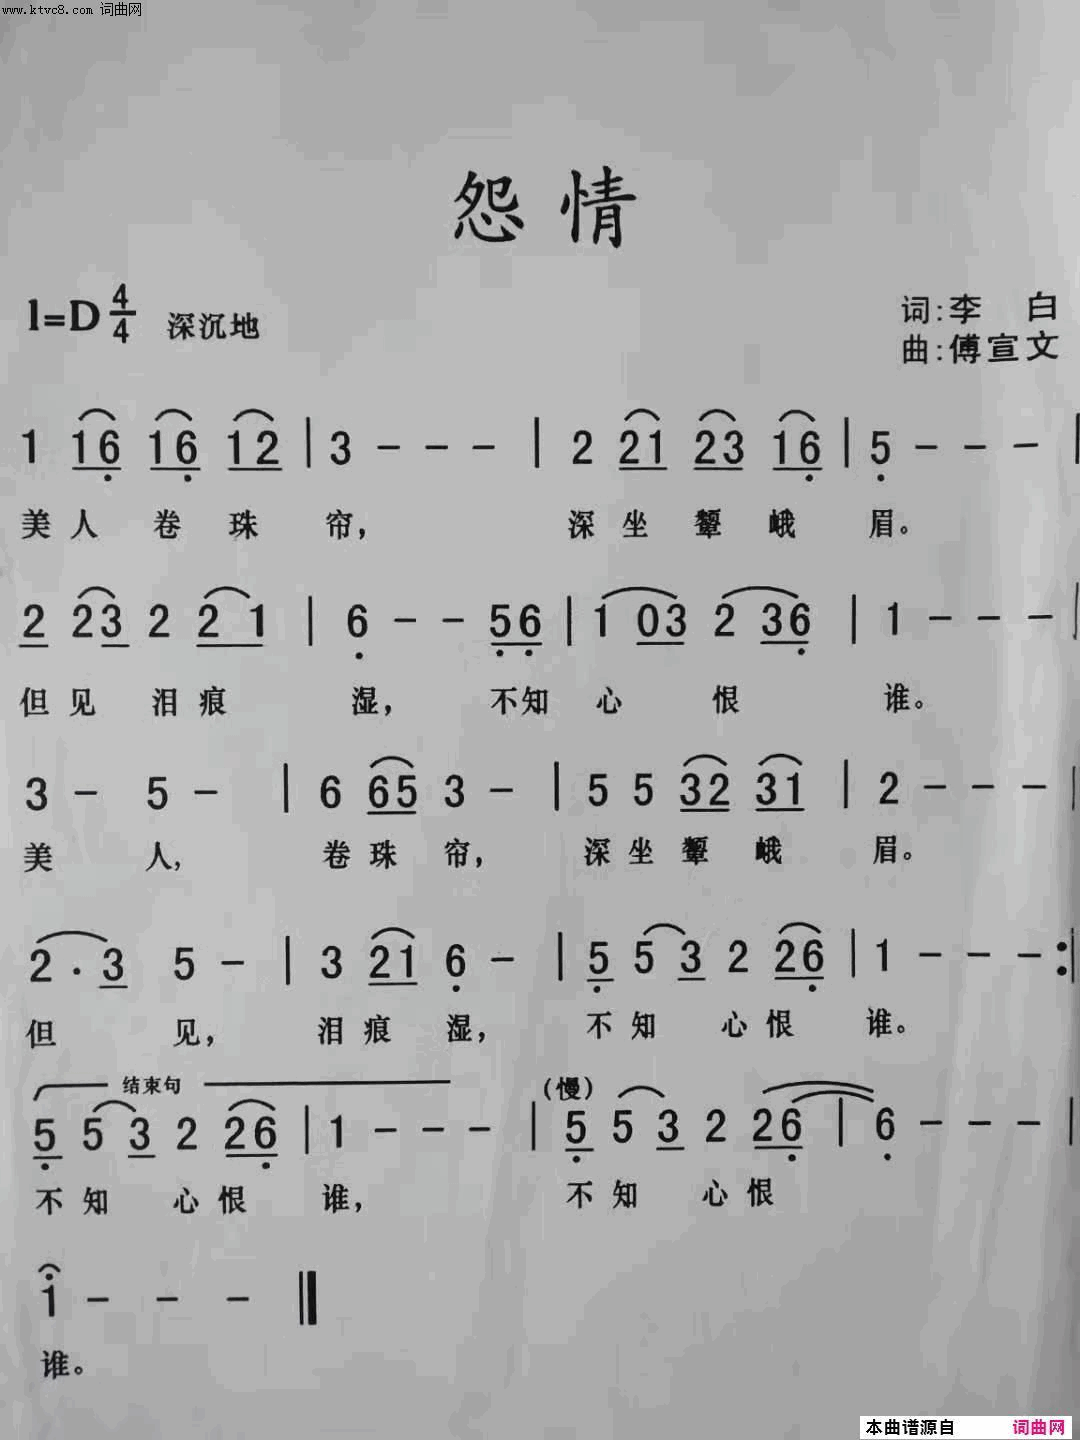 www.ktvc8.com 词曲网
怨情
1=D 4/4 深沉地
词:李 白
曲:傅宣文
1 16 16 12 | 3 - - - | 2 21 23 16 | 5 - - - |
美 人 卷 珠 帘, 深 坐 颦 峨 眉。
2 23 2 2 1 | 6 - - 56 | 1 03 2 36 | 1 - - - |
但 见 泪 痕 湿, 不 知 心 恨 谁。
3 - 5 - | 6 65 3 - | 5 5 32 31 | 2 - - - |
美 人, 卷 珠 帘, 深 坐 颦 峨 眉。
2 · 3 5 - | 3 21 6 - | 5 5 3 2 26 | 1 - - - :|
但 见, 泪 痕 湿, 不 知 心 恨 谁。
结束句 (慢)
5 5 3 2 26 | 1 - - - | 5 5 3 2 26 | 6 - - - |
不 知 心 恨 谁, 不 知 心 恨
1 - - - ‖
谁。
本曲谱源自 词曲网